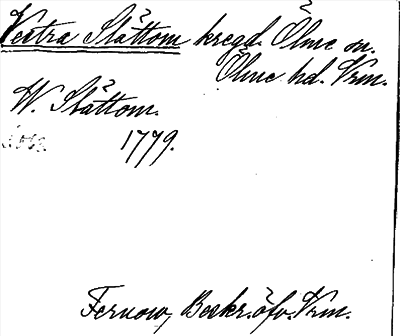 Vestra Slåttom kregd. Ölme sn.
Ölme hd. Vrm.
W. Slåttom.
1779.
Fernow, Beskr. öfv. Vrm.